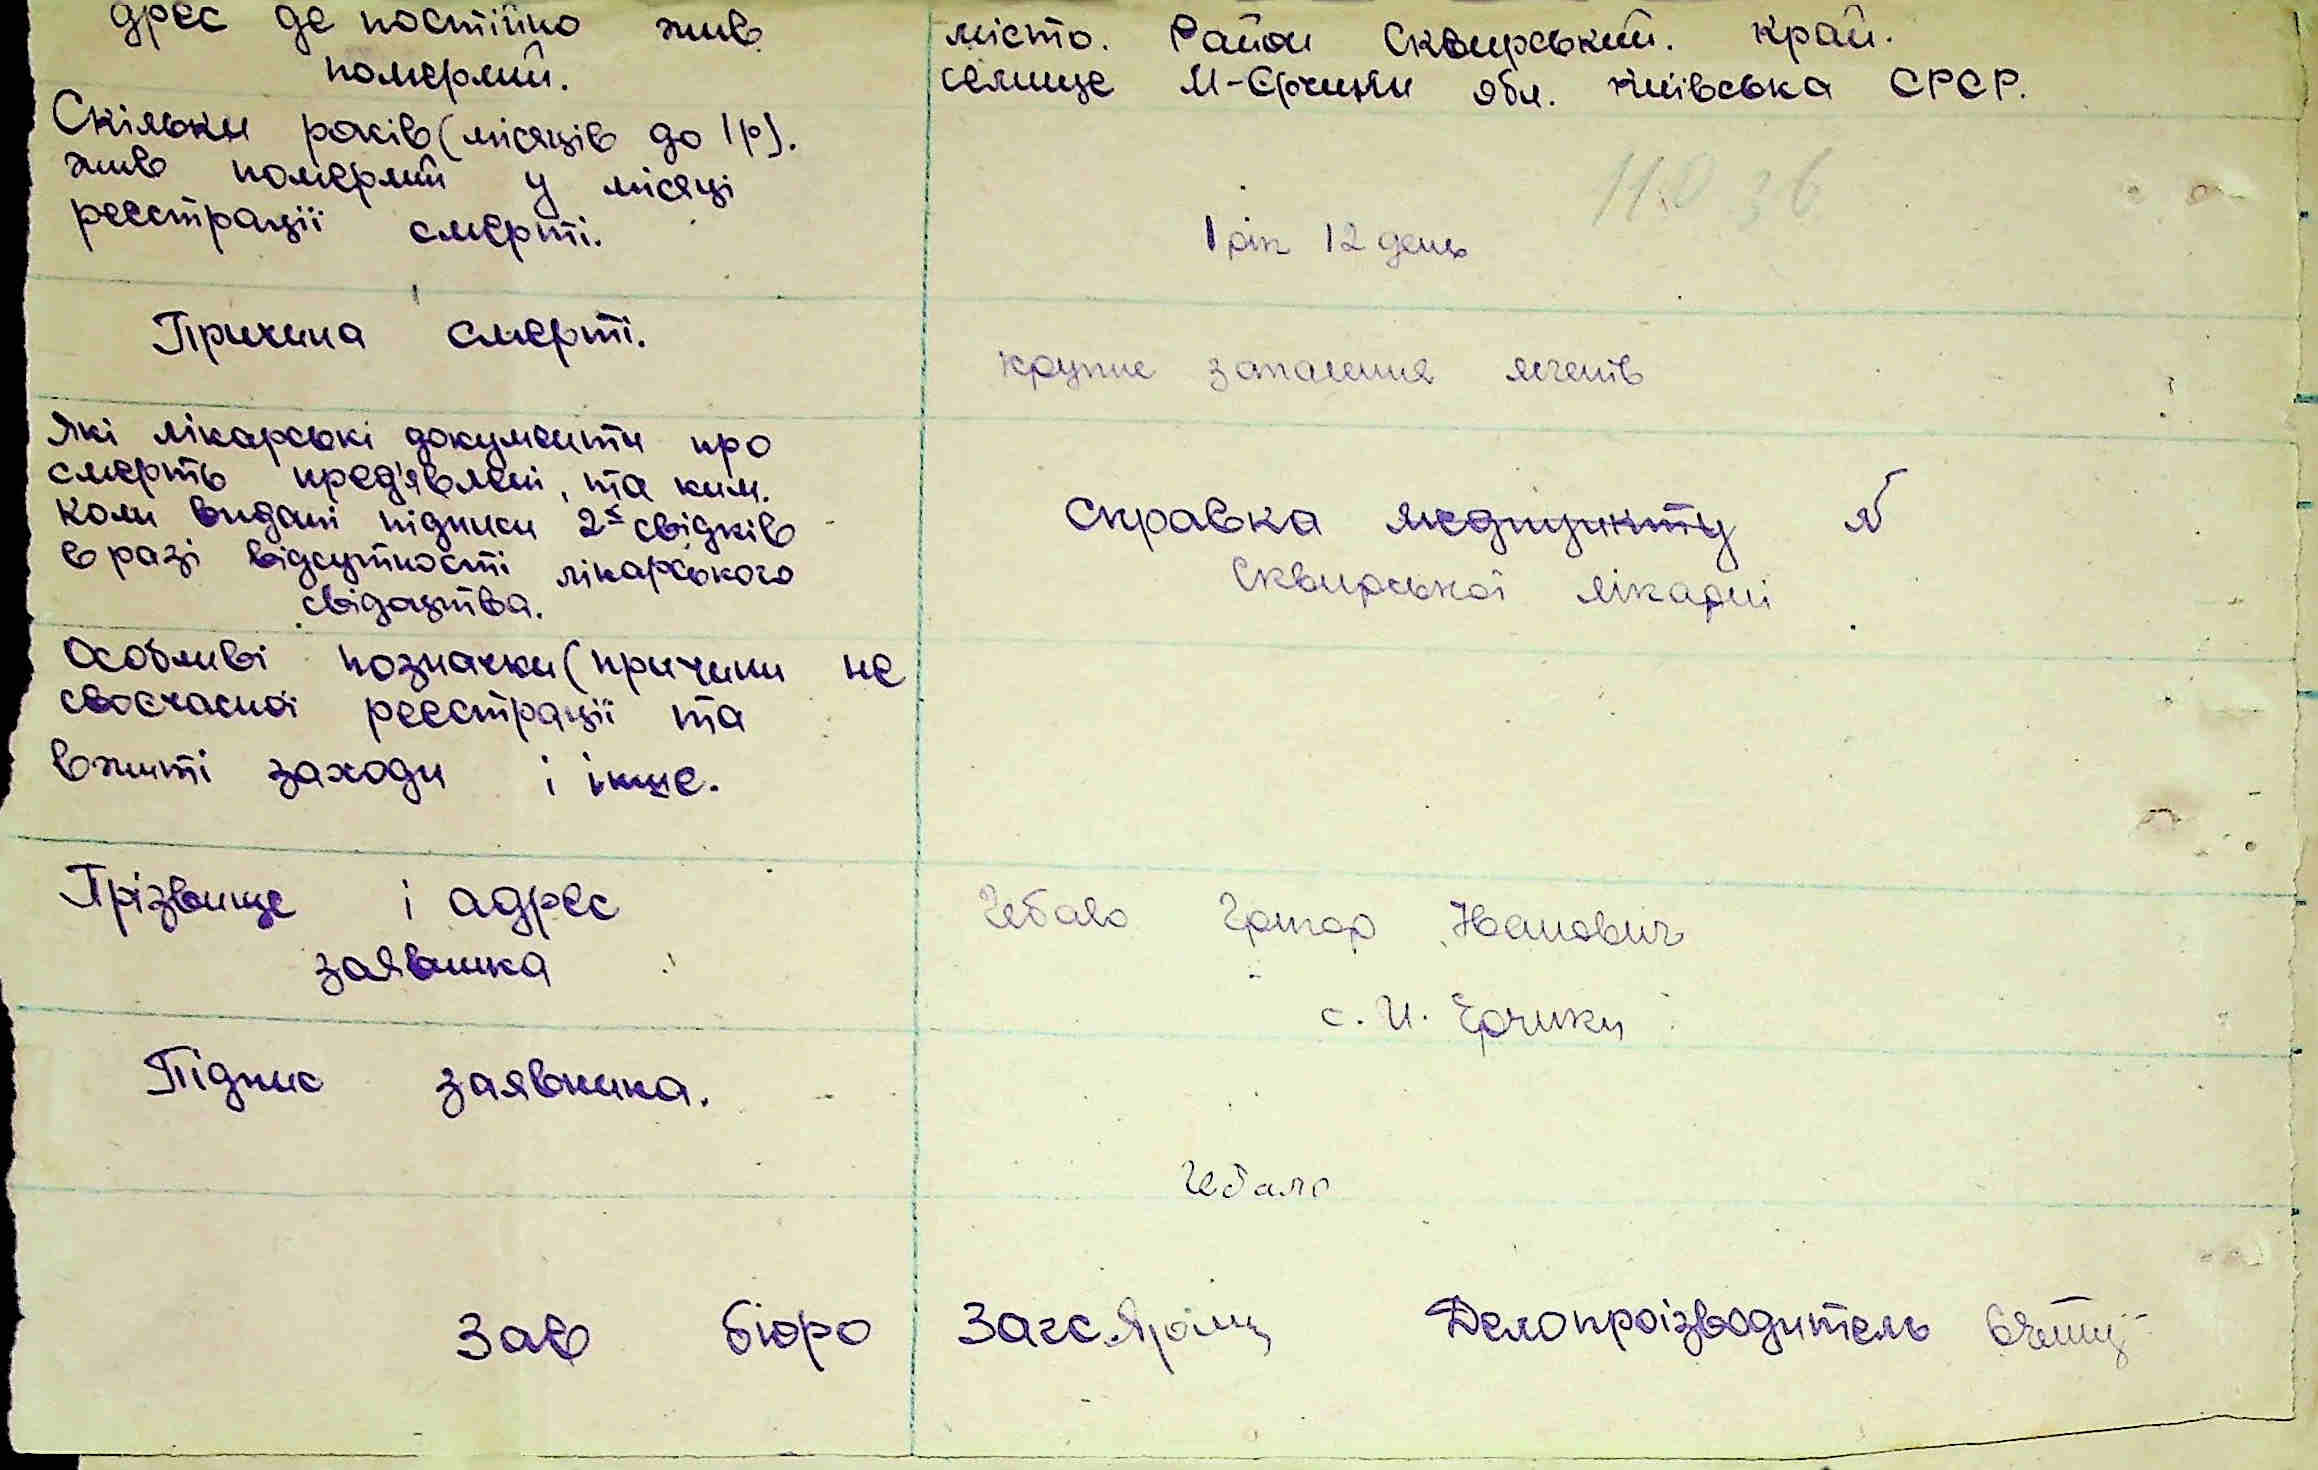 дрес де постійно жив
померлий.
місто. Район Сквирський. край.
селище М-Єрчики обл. Київська СРСР.
Скільки років (місяців до 1р).
жив померлий у місяці
реєстрації смерті.
1 рік 12 день
Причина смерті.
крупне запалення легенів
Які лікарські документи про
смерть пред'явлені, та ким.
коли видані підписи 2х свідків
в разі відсутності лікарського
свідоцтва.
справка медпункту
Сквирської лікарні
Особливі позначки (причини не
своєчасної реєстрації та
вжиті заходи і інше.
Прізвище і адрес
заявника
Чебало Григор Іванович
с. М. Єрчики
Підпис заявника.
Чебало
Зав бюро Загс. Делопроізводитель